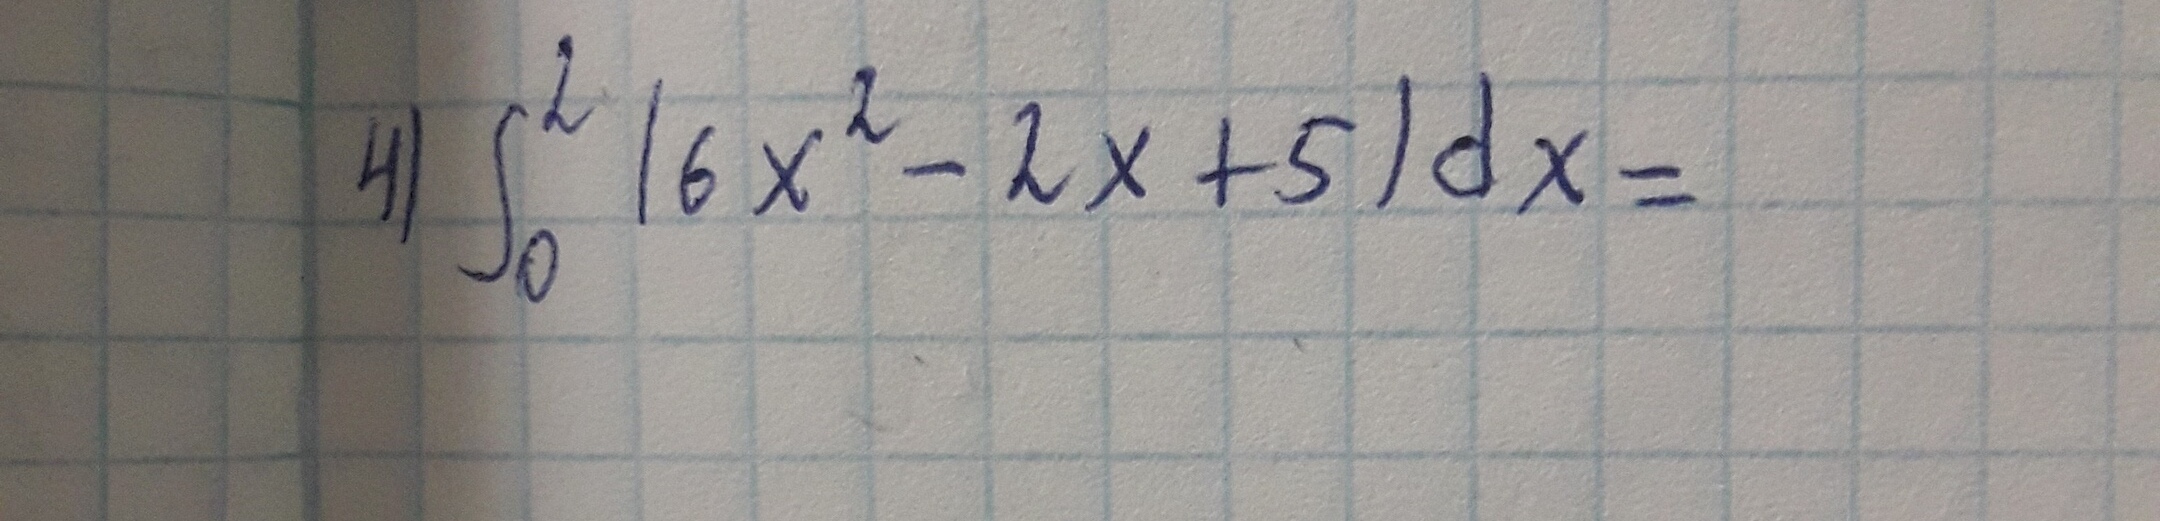 4) ∫₀² (6x² - 2x + 5) dx =